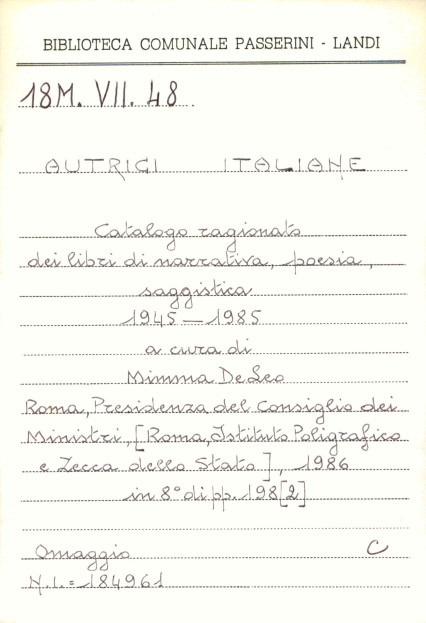 BIBLIOTECA COMUNALE PASSERINI - LANDI
18M. VII. 48
AUTRICI ITALIANE
Catalogo ragionato
dei libri di narrativa, poesia,
saggistica
1945 - 1985
a cura di
Mimma De Leo
Roma, Presidenza del Consiglio dei
Ministri, [Roma, Istituto Poligrafico
e Zecca dello Stato], 1986
in 8° di pp. 198[2]
Omaggio C
N.I. = 184961